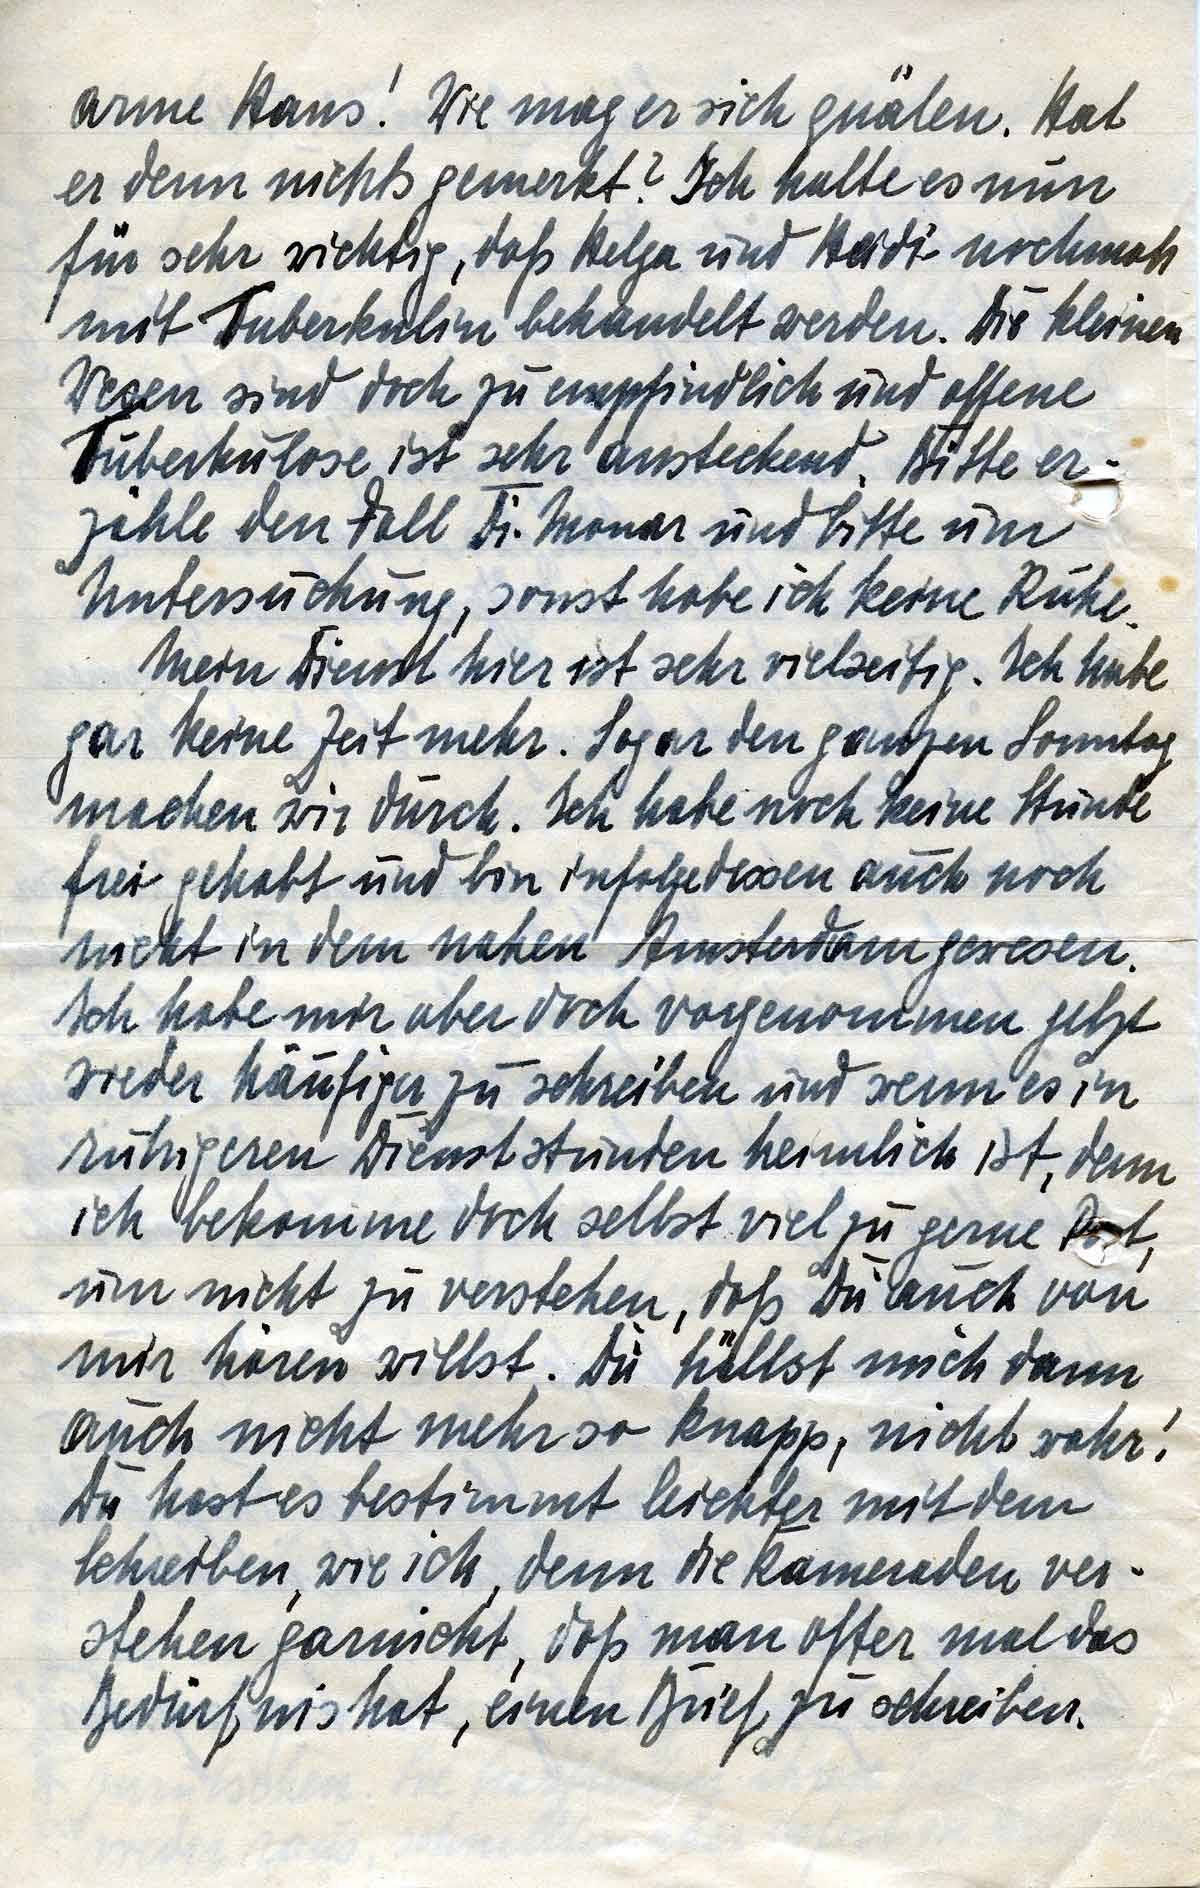 arme Hans! Wie mag er sich quälen. Hat
er denn nichts gemerkt? Ich halte es nun
für sehr wichtig, daß Helga und Heidi nochmals
mit Tuberkulin behandelt werden. Die kleinen
Wesen sind doch zu empfindlich und offene
Tuberkulose ist sehr ansteckend. Bitte er-
zähle den Fall Dr. Monar und bitte um
Untersuchung, sonst habe ich keine Ruhe.
Mein Dienst hier ist sehr vielseitig. Ich habe
gar keine Zeit mehr. Sogar den ganzen Sonntag
machen wir durch. Ich habe noch keine Stunde
frei gehabt und bin infolgedessen auch noch
nicht in dem nahen Amsterdam gewesen.
Ich habe mir aber doch vorgenommen jetzt
wieder häufiger zu schreiben und wenn es in
ruhigeren Dienststunden heimlich ist, denn
ich bekomme doch selbst viel zu gerne Post,
um nicht zu verstehen, daß Du auch von
mir hören willst. Du hällst mich dann
auch nicht mehr so knapp, nicht wahr!
Du hast es bestimmt leichter mit dem
Schreiben, wie ich, denn die Kameraden ver-
stehen garnicht, daß man öfter mal das
Bedürfnis hat, einen Brief zu schreiben.